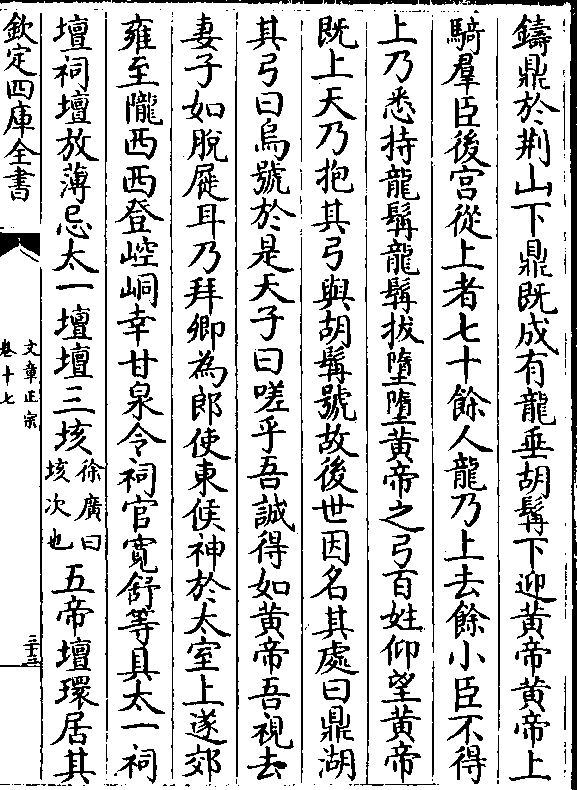 鑄鼎於荆山下鼎既成有龍垂胡髯下迎黄帝黄帝上
騎羣臣後宫從上者七十餘人龍乃上去餘小臣不得
上乃悉持龍髯龍髯拔墮墮黄帝之弓百姓仰望黄帝
既上天乃抱其弓與胡髯號故後世因名其處曰鼎湖
其弓曰烏號於是天子曰嗟乎吾誠得如黄帝吾視去
妻子如脫屣耳乃拜卿為郎使東候神於太室上遂郊
雍至隴西西登崆峒幸甘泉令祠官寛舒等具太一祠
壇祠壇放薄忌太一壇壇三垓徐廣曰垓次也五帝壇環居其
欽定四庫全書
文章正宗
卷十七
三十三